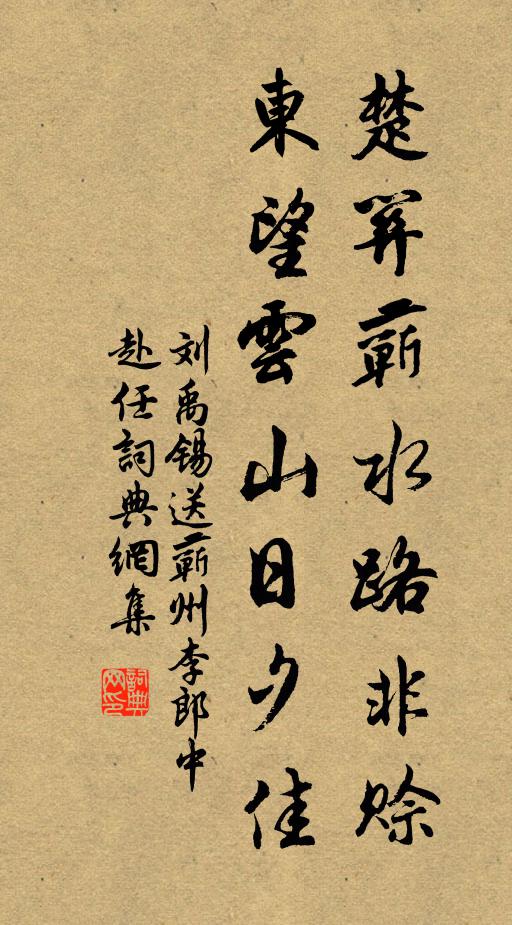 楚關蘄水路非賒
東望雲山日夕佳
刘禹錫送蘄州李郎中
赴任詞典網集
詞典
网印